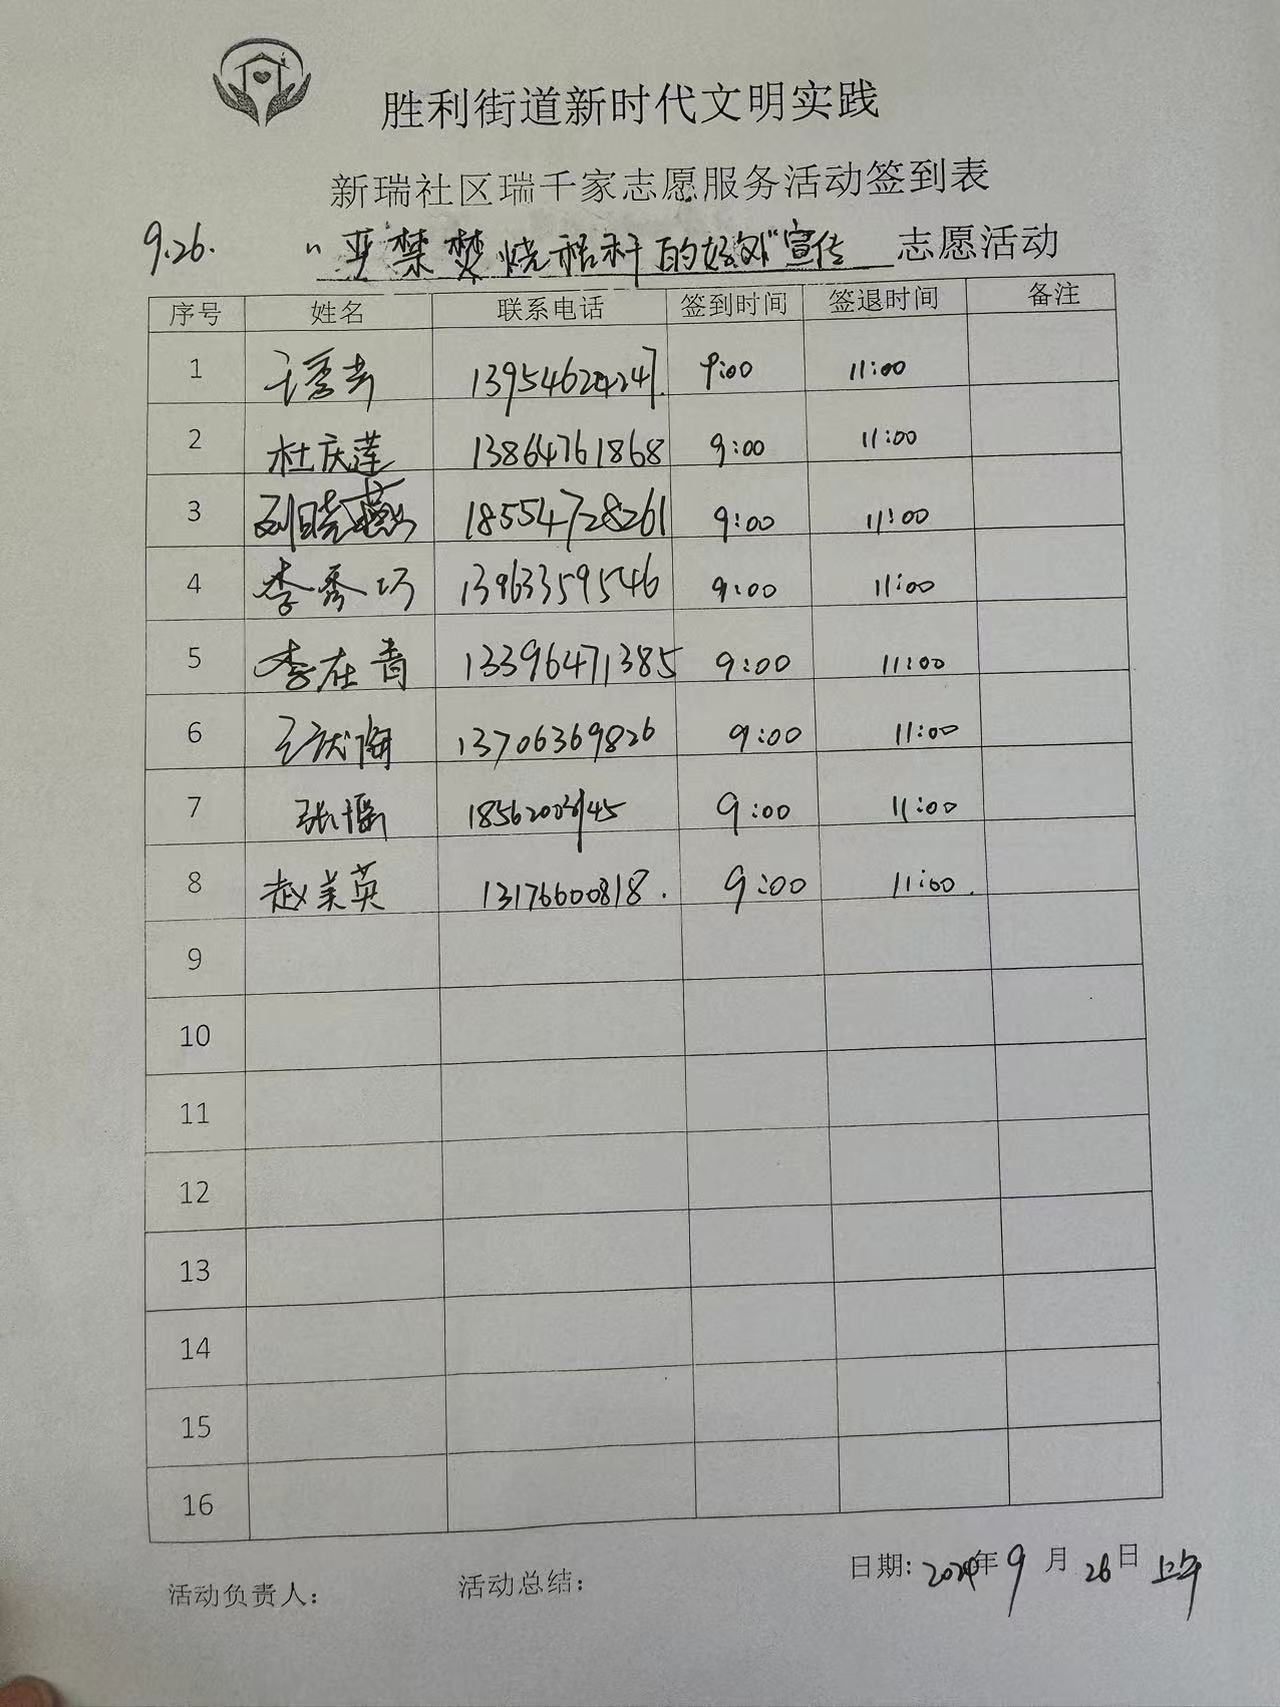 胜利街道新时代文明实践
新瑞社区瑞千家志愿服务活动签到表
9.26. “严禁焚烧秸秆的好处”宣传 志愿活动
序号 姓名 联系电话 签到时间 签退时间 备注
1 9:00 11:00
2 杜庆莲 13864761868 9:00 11:00
3 刘晓燕 18554728261 9:00 11:00
4 李秀巧 13963359546 9:00 11:00
5 李在青 13396471385 9:00 11:00
6 13706369826 9:00 11:00
7 张瑶 9:00 11:00
8 赵美英 13176600818. 9:00 11:00.
9
10
11
12
13
14
15
16
活动负责人: 活动总结: 日期: 2024年9月26日 上午